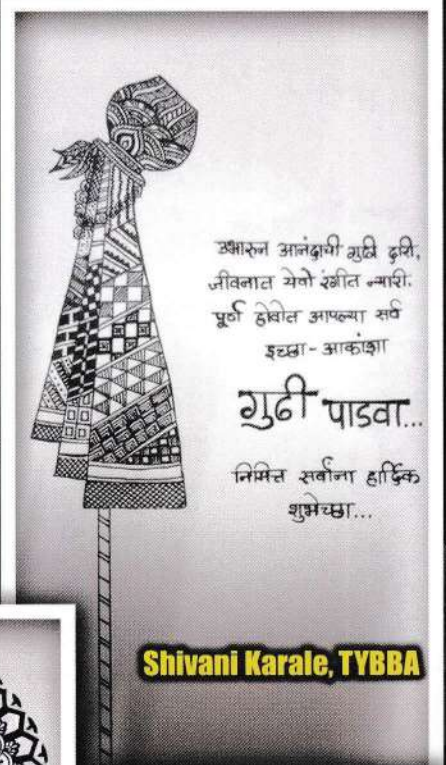 उभारुन आनंदाची गुढी दारी,
जीवनात येवो रंगीत न्यारी.
पूर्ण होवोत आपल्या सर्व
इच्छा - आकांशा
गुढी पाडवा...
निमित्त सर्वांना हार्दिक
शुभेच्छा...
Shivani Karale, TYBBA